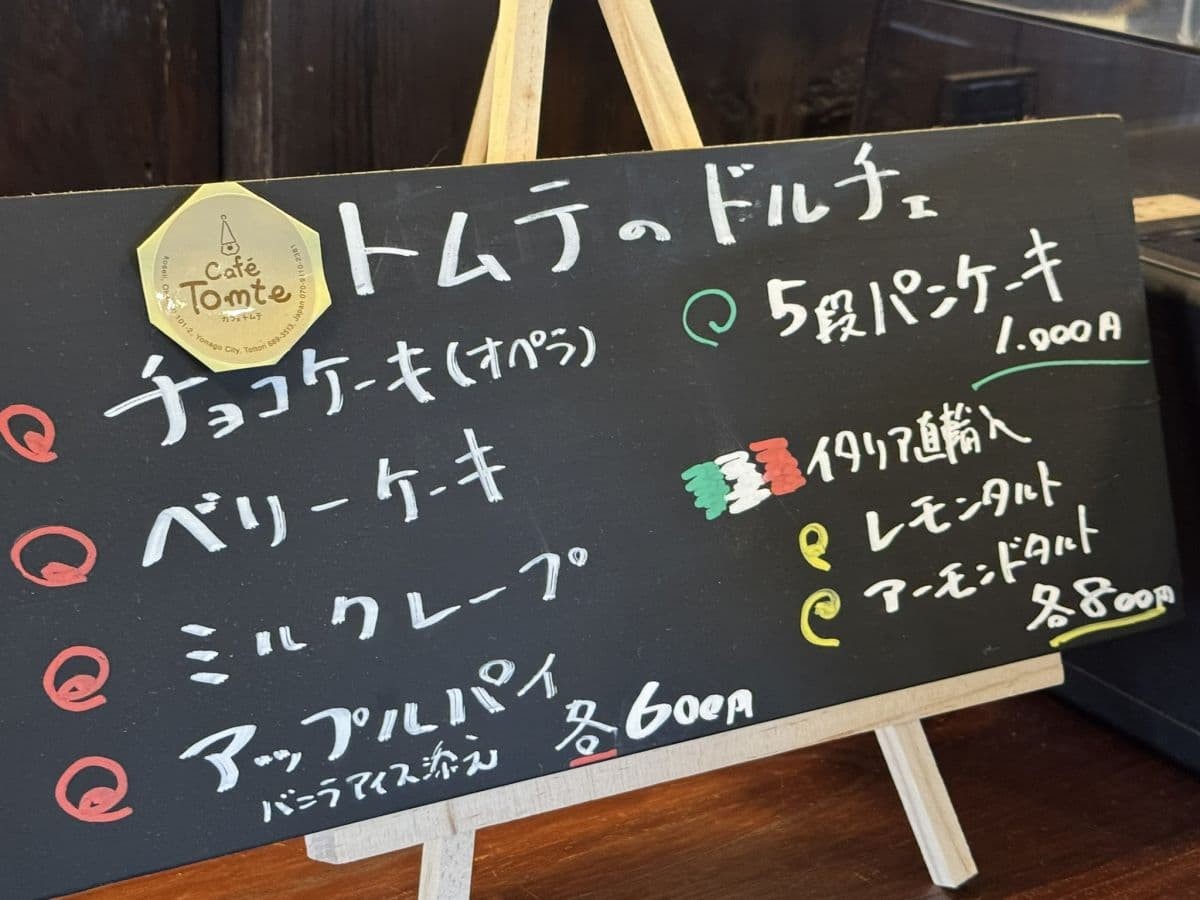 トムテのドルチェ
Café
Tomte
カフェトムテ
チョコケーキ(オペラ)
ベリーケーキ
ミルクレープ
アップルパイ
バニラアイス添え
各600円
5段パンケーキ
1.000円
イタリア直輸入
レモンタルト
アーモンドタルト
各800円